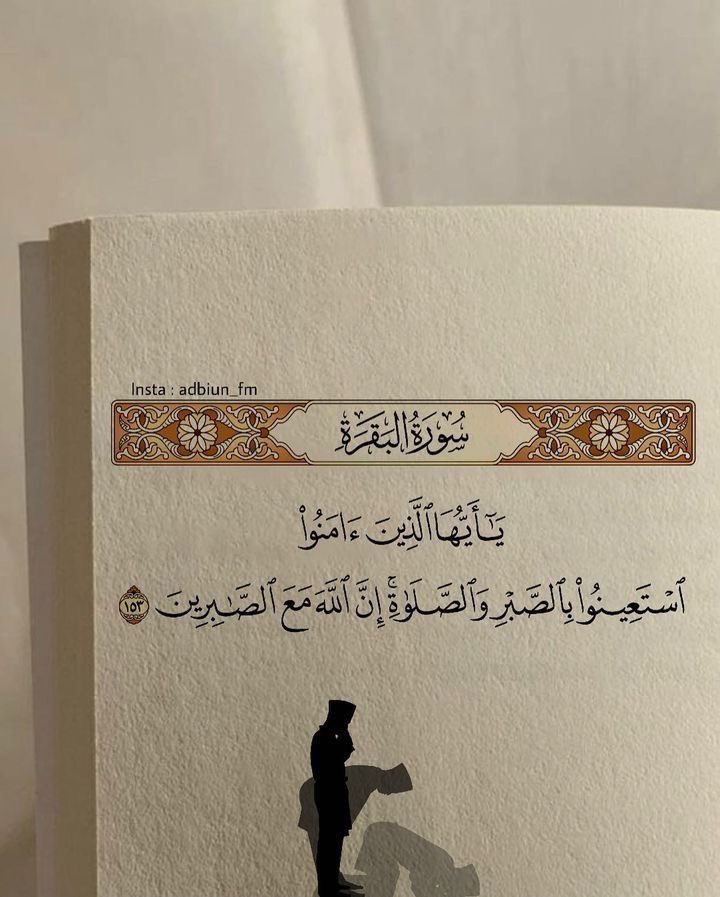 Insta : adbiun_fm
سُورَةُ البَقَرَةِ
يَـٰٓأَيُّهَا ٱلَّذِينَ ءَامَنُوا۟
ٱسْتَعِينُوا۟ بِٱلصَّبْرِ وَٱلصَّلَوٰةِ ۚ إِنَّ ٱللَّهَ مَعَ ٱلصَّـٰبِرِينَ ١٥٣